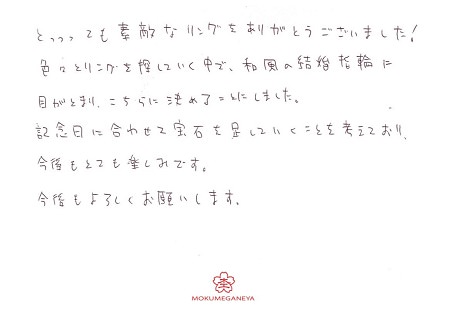 とっっっても素敵なリングをありがとうございました!
色々とリングを探していく中で、和風の結婚指輪に
目がとまり、こちらに決めることにしました。
記念日に合わせて宝石を足していくことを考えており、
今後もとても楽しみです。
今後もよろしくお願いします。
MOKUMEGANEYA